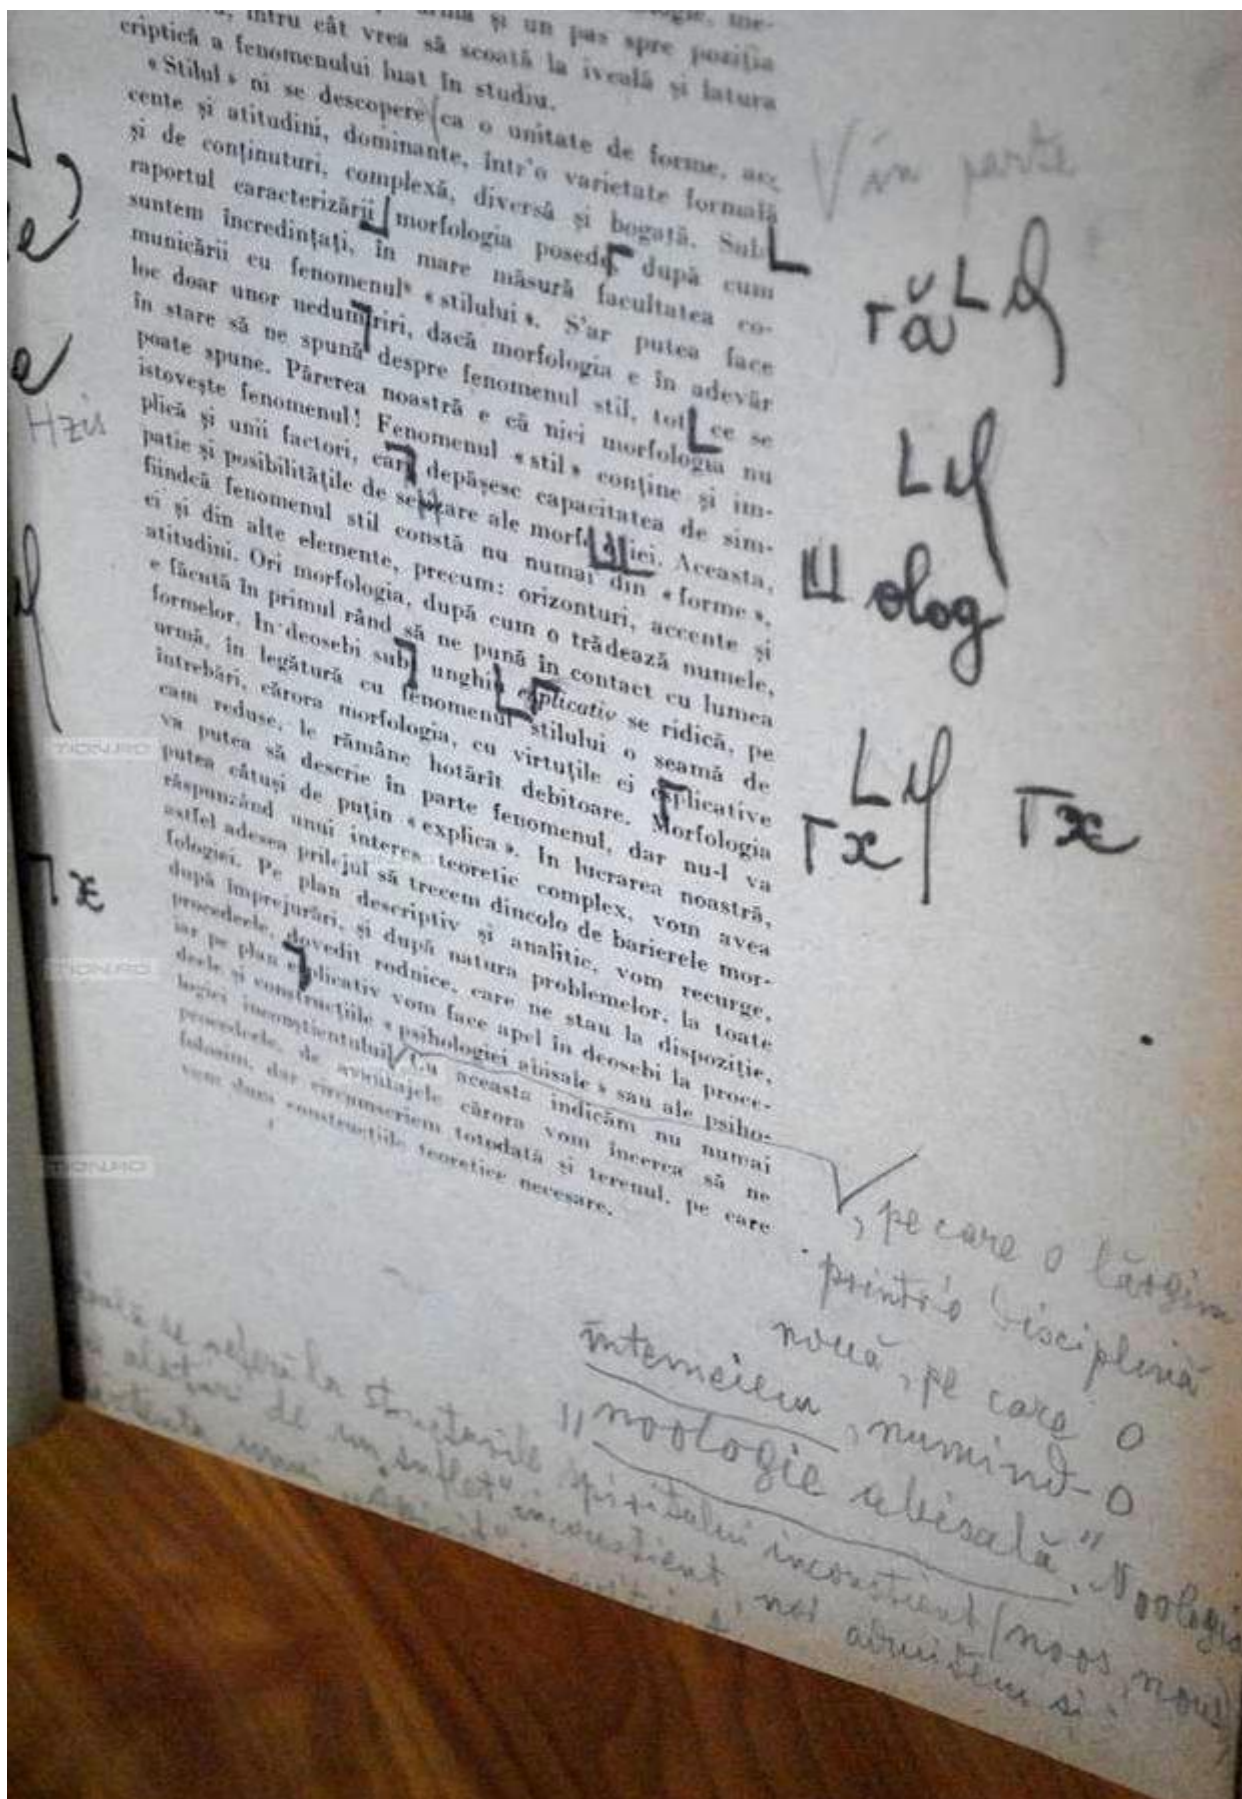 și un pas spre poziția
întru cât vrea să scoată la iveală și latura
criptică a fenomenului luat în studiu.
« Stilul » ni se descopere ca o unitate de forme, ac-
cente și atitudini, dominante, într'o varietate formală
și de conținuturi, complexă, diversă și bogată. Sub
raportul caracterizării morfologia posedă, după cum
suntem încredințați, în mare măsură facultatea co-
municării cu fenomenul « stilului ». S'ar putea face
loc doar unor nedumiriri, dacă morfologia e în adevăr
în stare să ne spună despre fenomenul stil, tot ce se
poate spune. Părerea noastră e că nici morfologia nu
istovește fenomenul! Fenomenul « stil » conține și im-
plică și unii factori, cari depășesc capacitatea de sim-
patie și posibilitățile de ale Aceasta,
fiindcă fenomenul stil constă nu numai din « forme »,
ci și din alte elemente, precum: orizonturi, accente și
atitudini. Ori morfologia, după cum o trădează numele,
e făcută în primul rând să ne pună în contact cu lumea
formelor. In deosebi sub unghiu explicativ se ridică, pe
urmă, în legătură cu fenomenul stilului o seamă de
întrebări, cărora morfologia, cu virtuțile ei explicative
cam reduse, le rămâne hotărît debitoare. Morfologia
va putea să descrie în parte fenomenul, dar nu-l va
putea câtuși de puțin « explica ». In lucrarea noastră,
răspunzând unui interes teoretic complex, vom avea
astfel adesea prilejul să trecem dincolo de barierele mor-
fologiei. Pe plan descriptiv și analitic, vom recurge,
după împrejurări, și după natura problemelor, la toate
procedeele, dovedit rodnice, care ne stau la dispoziție,
iar pe plan explicativ vom face apel în deosebi la proce-
deele și construcțiile « psihologiei abisale » sau ale psiho-
logiei inconștientului. Cu aceasta indicăm nu numai
procedeele, de avantajele cărora vom încerca să ne
folosim, dar circumscriem totodată și terenul, pe care
vom dura construcțiile teoretice necesare.
în parte
ă
olog
x
x
x
, pe care o lărgim
printr'o disciplină
nouă, pe care o
întemeiem, numind-o
"noologie abisală". Noologia
se referă la structurile spiritului inconștient (noos, nous)
alături de un "suflet" inconștient, noi admitem și